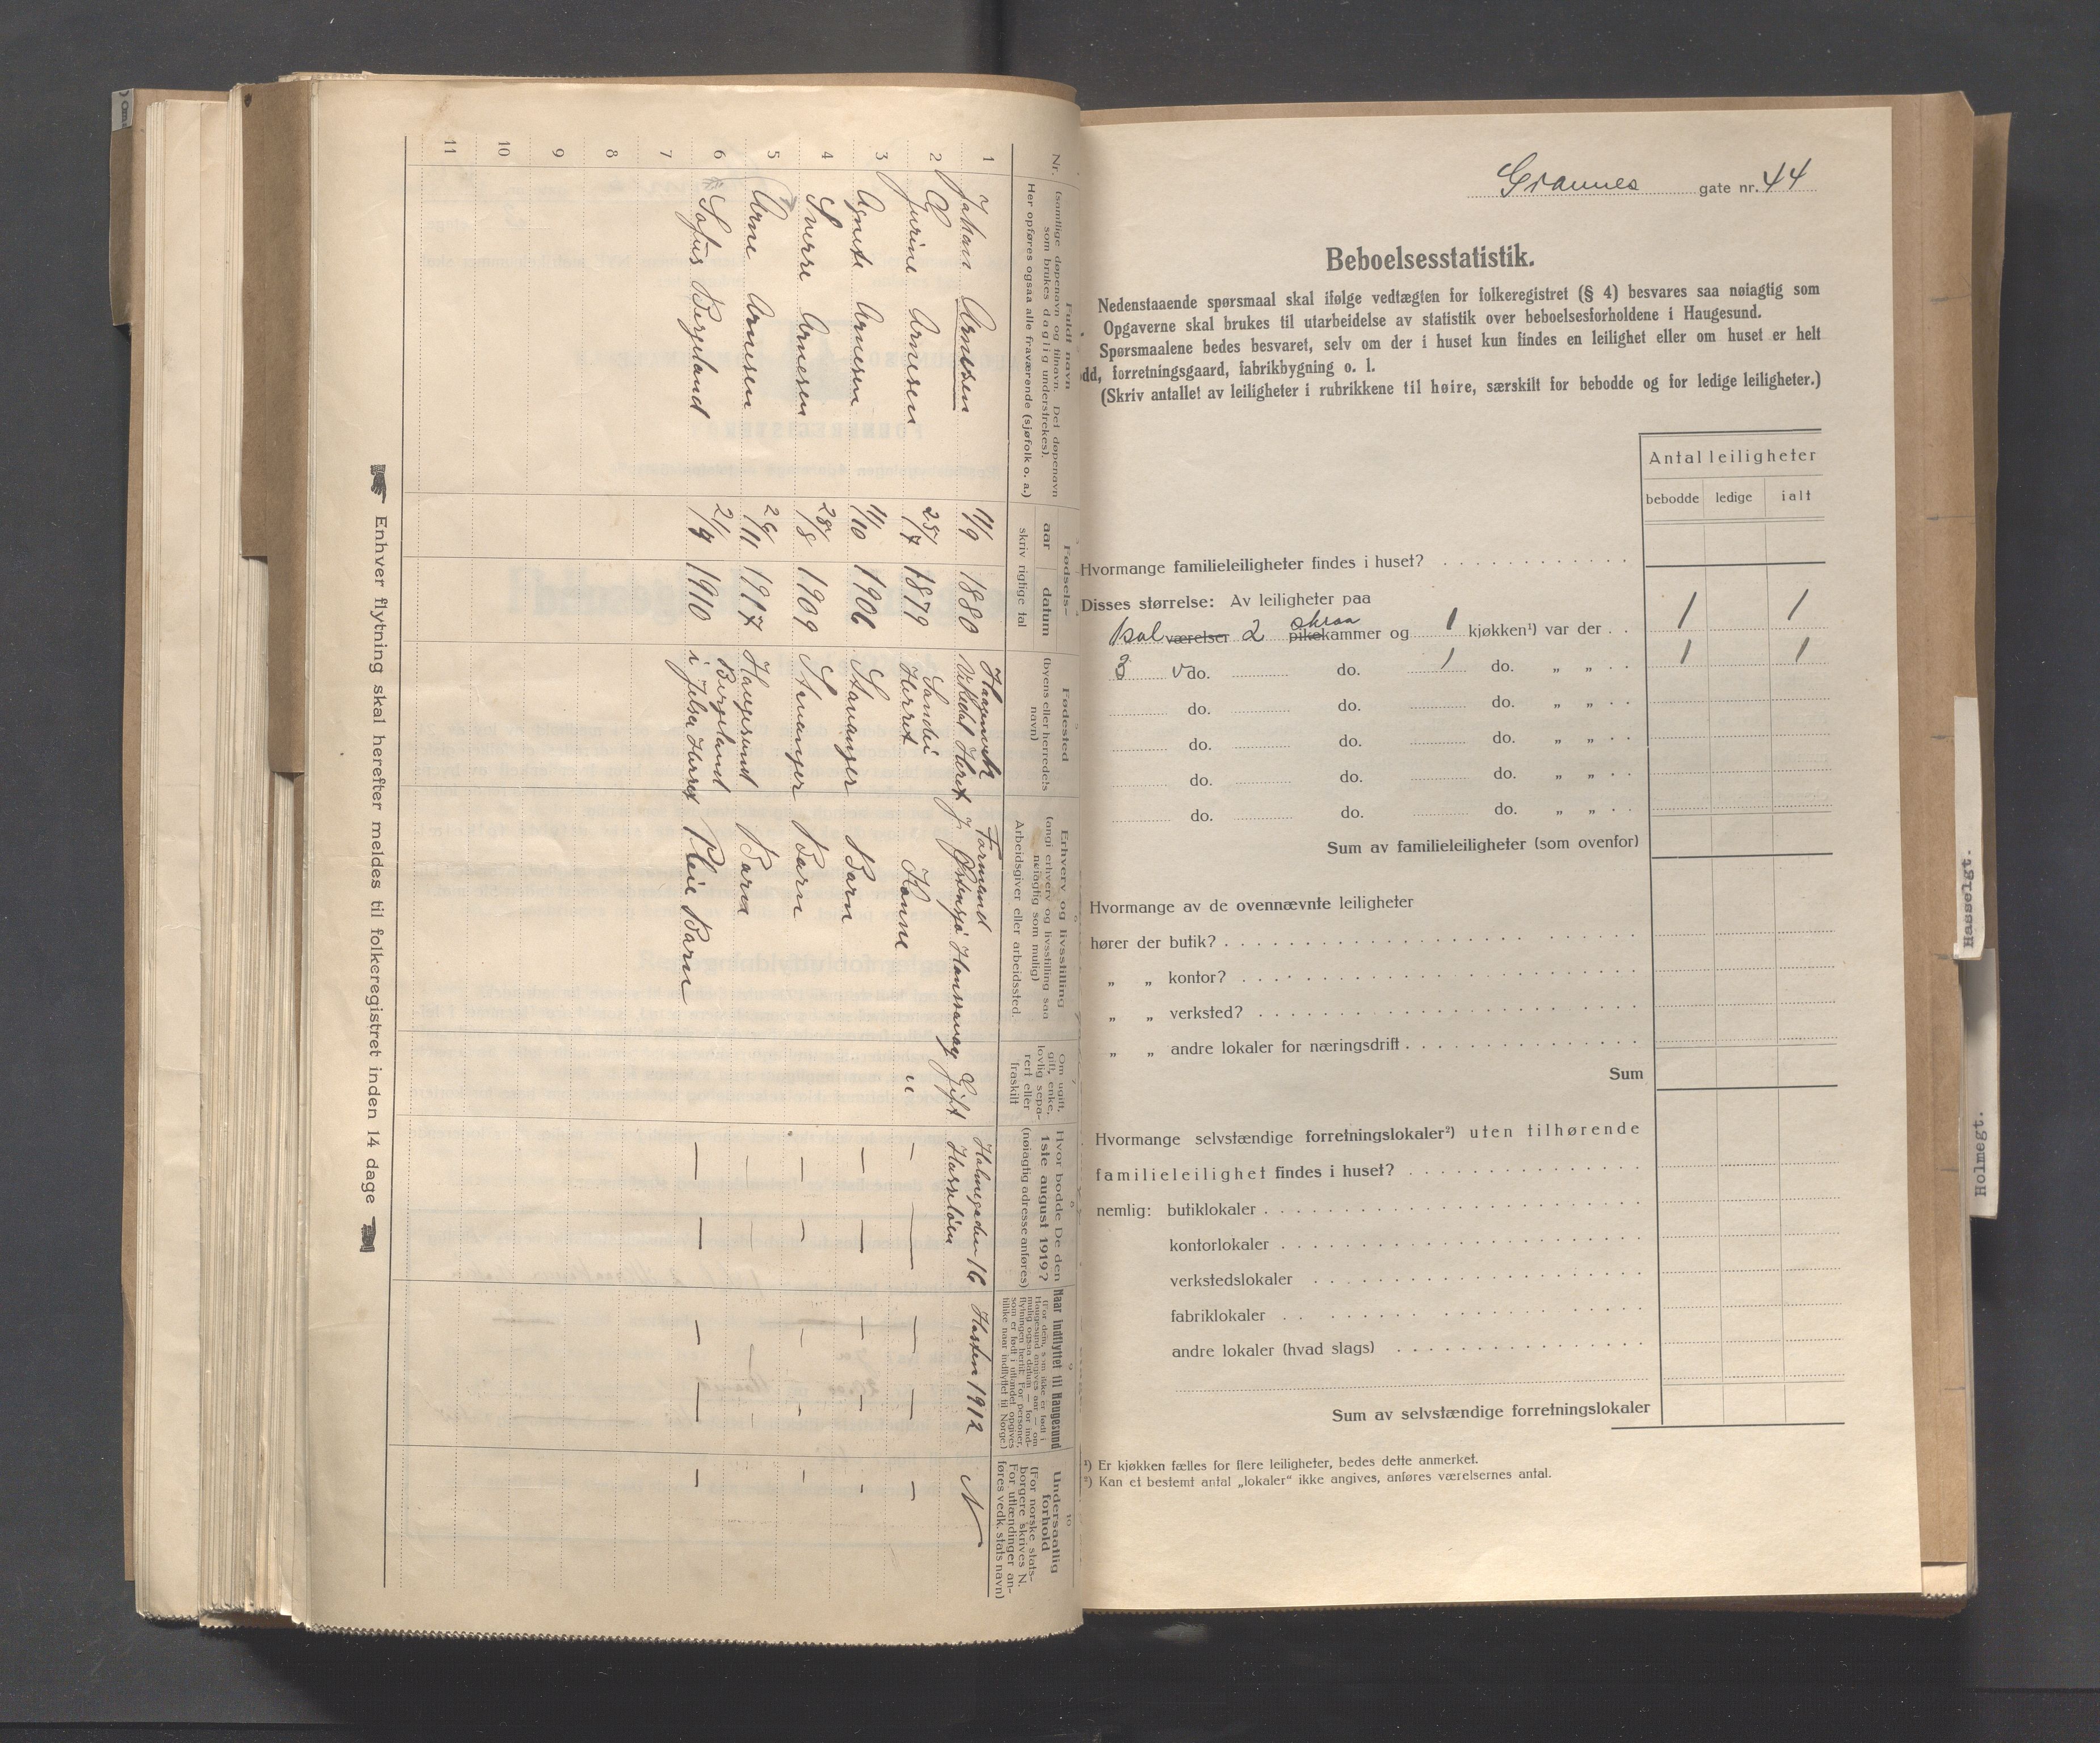 Nr.
Fuldt navn
(samtlige døpenavn og tilnavn. Det døpenavn
som brukes daglig understrekes).
Her opføres ogsaa alle fraværende (sjøfolk o. a.)
Fødsels-
aar
datum
skriv rigtige tal
Fødested
(byens eller herredets
navn)
Erhverv og livsstilling
(angi erhverv og livsstilling saa
nøiagtig som mulig)
Arbeidsgiver eller arbeidssted.
Om ugift,
gift, enke,
lovlig sepa-
rert eller
fraskilt
Hvor bodde De den
1ste august 1919?
(nøiagtig adresse anføres)
Naar indflyttet til Haugesund
(For dem, som ikke er født i
Haugesund angives aar — om
mulig ogsaa datum — for ind-
flytningen hertil. For personer,
som er født i utlandet opgives
tillike naar indflyttet til Norge.)
10
Undersaatlig
forhold
(For norske stats-
borgere skrives N.
For utlændinger an-
føres vedk. stats navn)
1 Johan Arnesen 11/9 1880 Vikedal Heret Formand Gift Holmegaden 16 Hasseløen Høsten 1912 N
2 Jurine Arnesen 25/7 1879 Sandei Herret Konne " — — — — —
3 Agnete Arnesen 11/10 1906 Stavanger Barn — — — — -
4 Sverre Arnesen 28/8 1909 Stavanger Barn — — — - -
5 Arne Arnesen 29/11 1917 Haugesund Barn — — — —
6 Sofus Bergeland 21/9 1910 Bergeland i Jelsa Herret Pleie Barn — — — — —
7
8
9
10
11
Enhver flytning skal herefter meldes til folkeregistret inden 14 dage
Grannes gate nr. 44
Beboelsesstatistik.
Nedenstaaende spørsmaal skal ifølge vedtægten for folkeregistret (§ 4) besvares saa nøiagtig som
Opgaverne skal brukes til utarbeidelse av statistik over beboelsesforholdene i Haugesund.
Spørsmaalene bedes besvaret, selv om der i huset kun findes en leilighet eller om huset er helt
dd, forretningsgaard, fabrikbygning o. l.
(Skriv antallet av leiligheter i rubrikkene til høire, særskilt for bebodde og for ledige leiligheter.)
Antal leiligheter
bebodde ledige ialt
Hvormange familieleiligheter findes i huset?
Disses størrelse: Av leiligheter paa
værelser 2 pikekammer skraa og 1 kjøkken¹) var der . . 1 1
3 v do. do. 1 do. „ „ . . 1 1
do. do. do. „ „ . .
do. do. do. „ „ . .
do. do. do. „ „ . .
do. do. do. „ „ . .
Sum av familieleiligheter (som ovenfor)
Hvormange av de ovennævnte leiligheter
hører der butik?
„ „ kontor?
„ „ verksted?
„ „ andre lokaler for næringsdrift
Sum
Hvormange selvstændige forretningslokaler²) uten tilhørende
familieleilighet findes i huset?
nemlig: butiklokaler
kontorlokaler
verkstedslokaler
fabriklokaler
andre lokaler (hvad slags)
Sum av selvstændige forretningslokaler
¹) Er kjøkken fælles for flere leiligheter, bedes dette anmerket.
²) Kan et bestemt antal „lokaler" ikke angives, anføres værelsernes antal.
Hasselgt.
Holmegt.